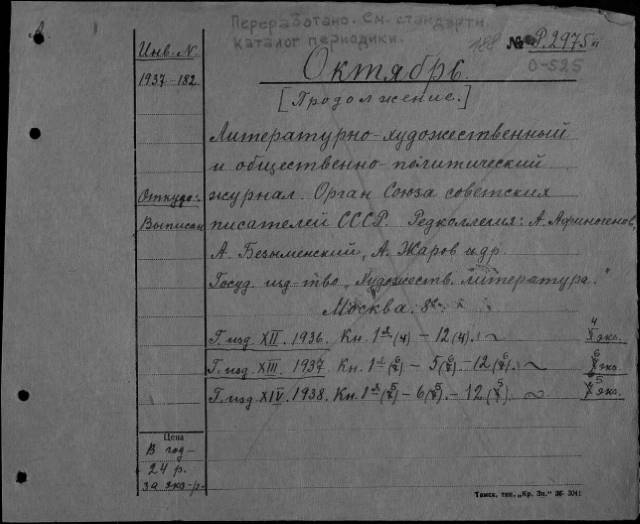 Переработано. См. стандартн.
каталог периодики.
188 № Р.2975 п
О-525
Инв. N.
1937-182
Октябрь.
[Продолжение.]
Литературно-художественный
и общественно-политический
Откудо:
журнал. Орган Союза советских
Выписан
писателей СССР. Редколлегия: А. Афиногенов,
А. Безыменский, А. Жаров и др.
Госуд. изд-тво „Художеств. литература."
Москва. 8°
Г. изд. XII. 1936. Кн. 1я (4) – 12 (4). 4 экз.
Г. изд. XIII. 1937 Кн. 1я (6) – 5 (6) – 12 (6). 6 экз
Г. изд. XIV. 1938. Кн. 1я (5) – 6 (5). – 12 (5). 5 экз.
Цена
В год –
24 р.
за экз-р.
Томск, тип. „Кр. Зн." 36 3041